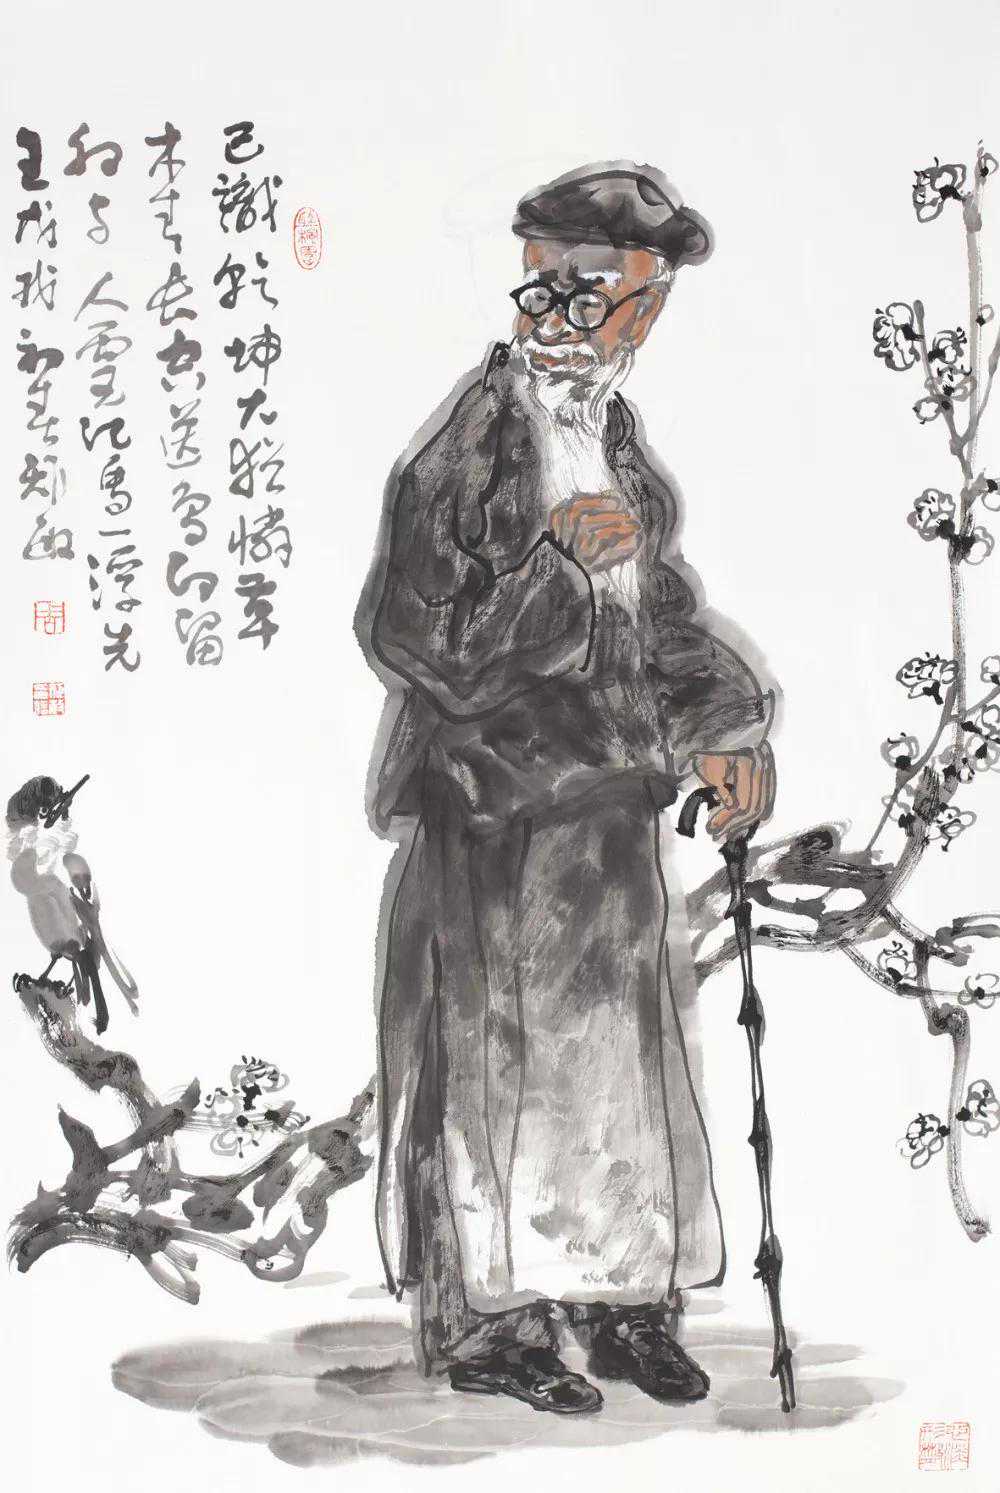 已識乾坤大猶憐草
木青長空送鳥印留
幻与人靈記馬一浮先
生戊戌初春